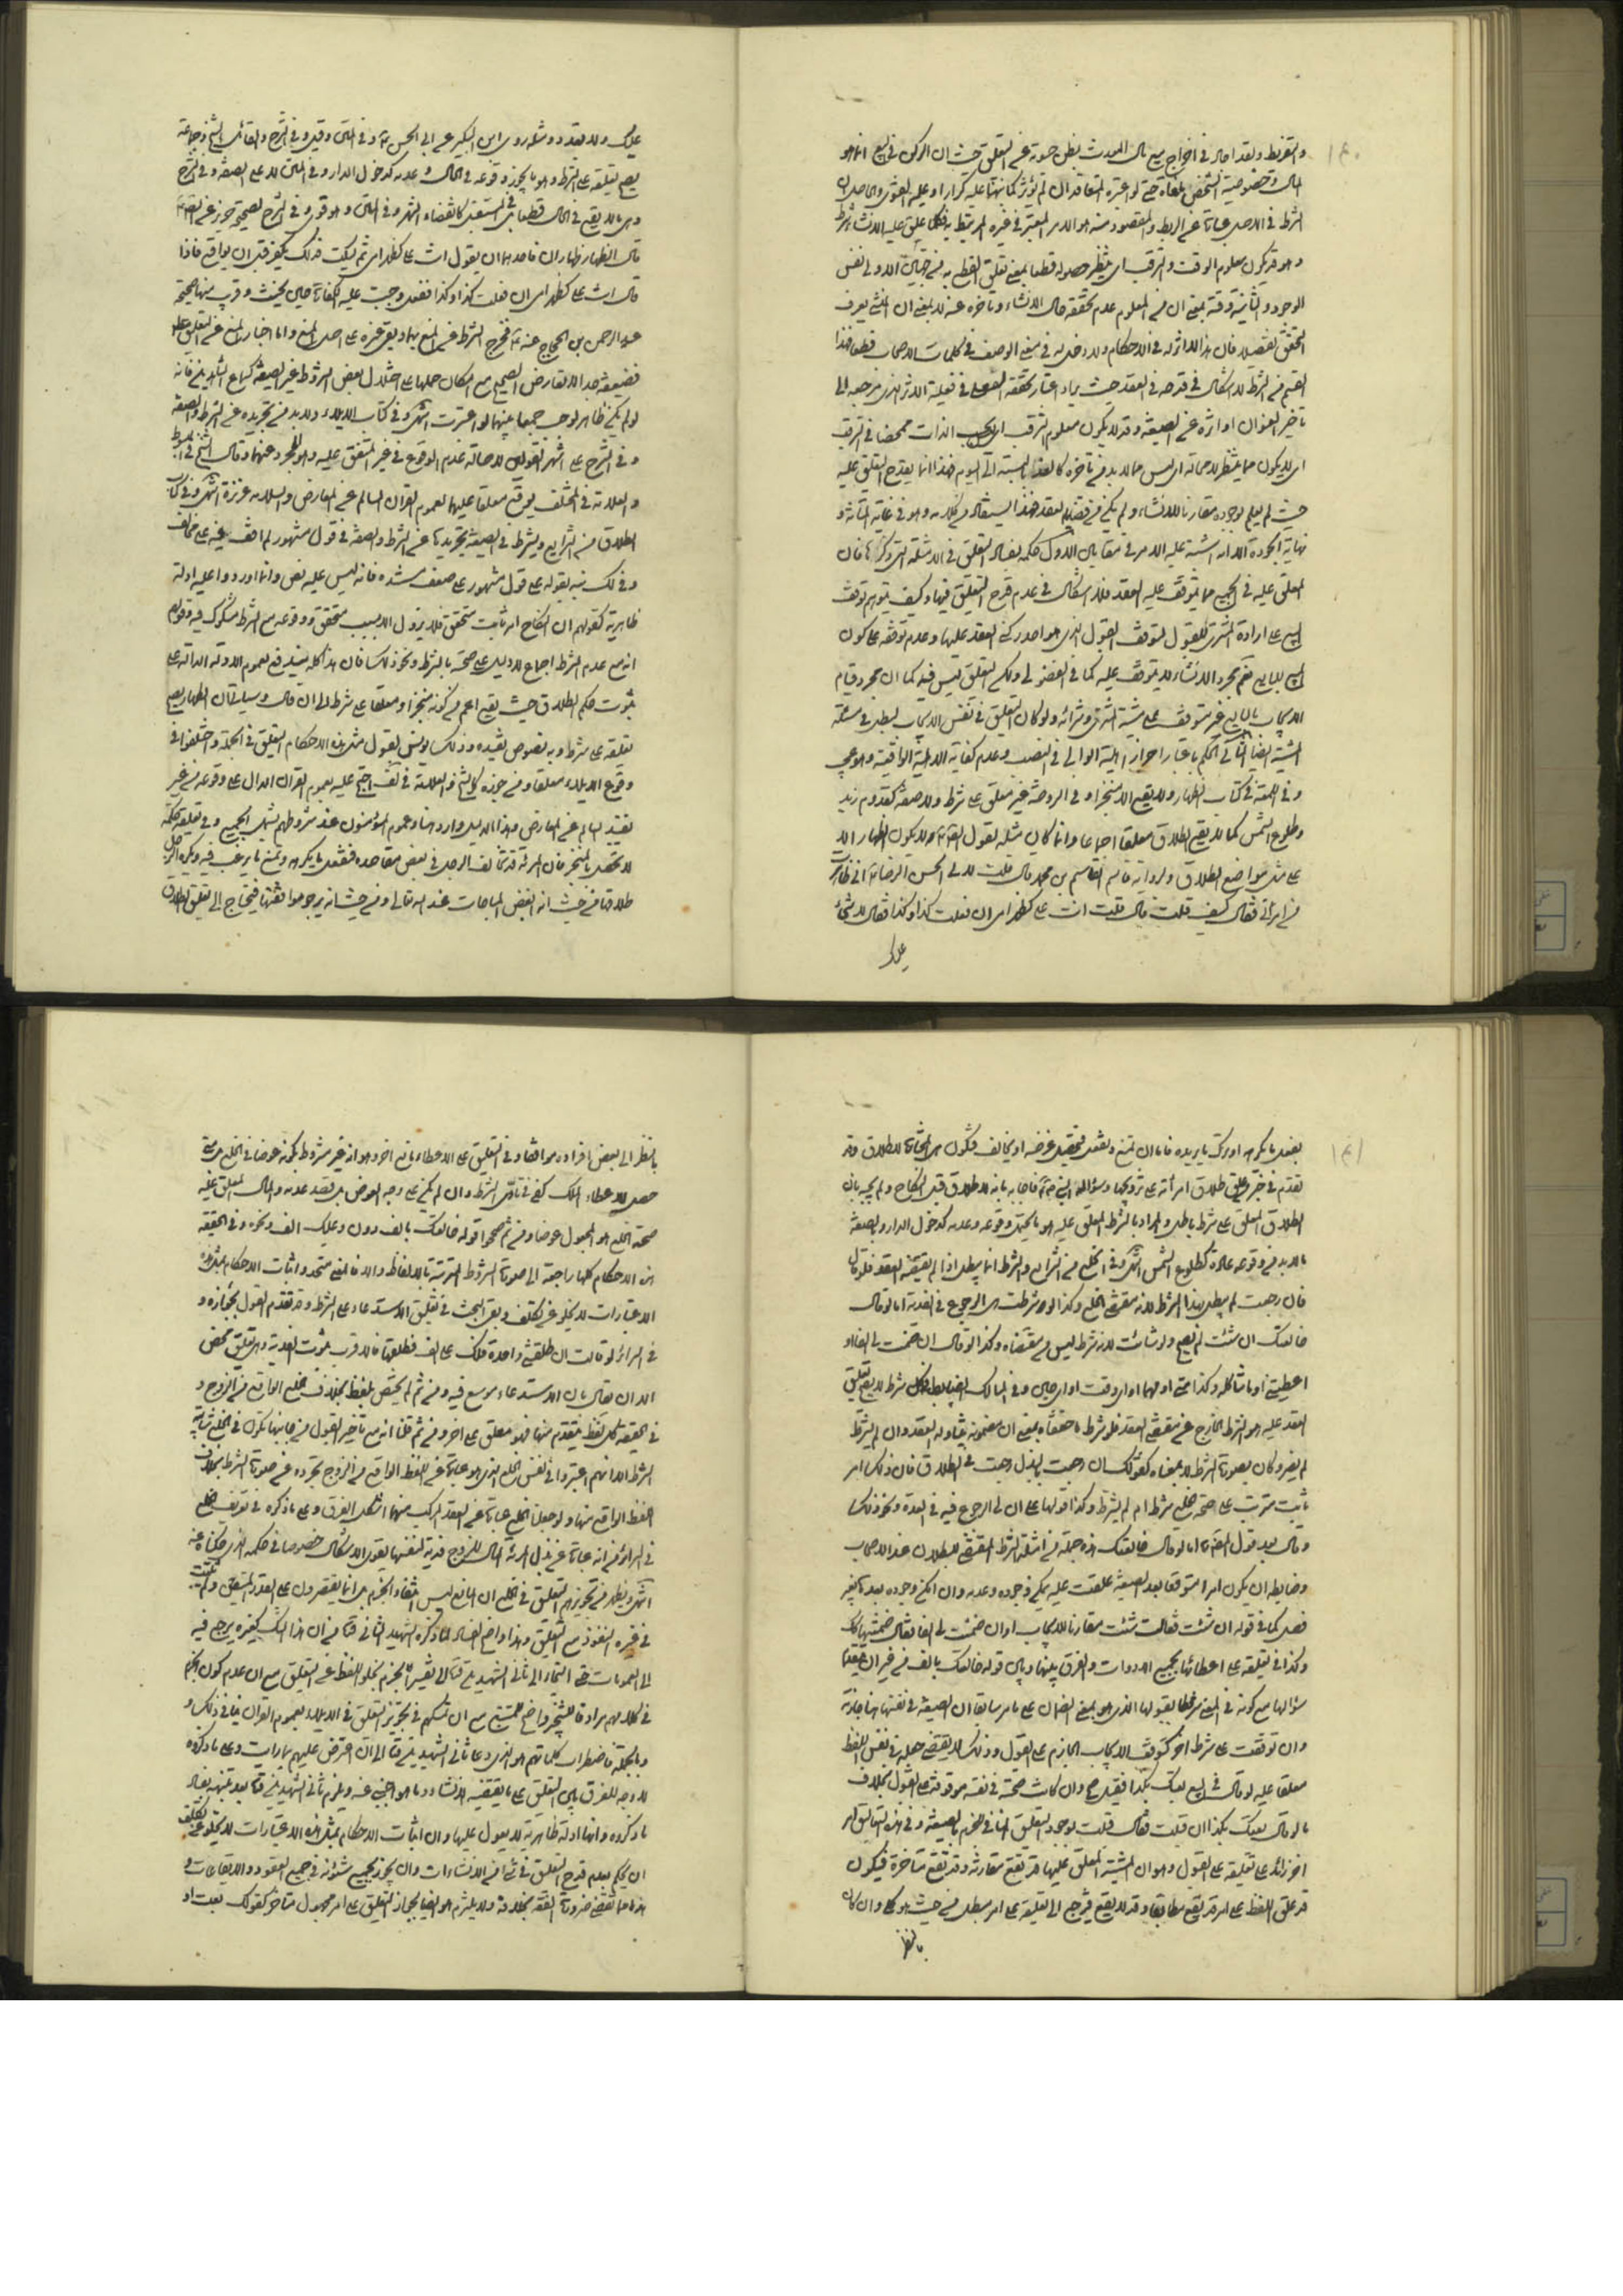 ١٤٠
والتفريط ولقد اجاد في اخراج بيع مال المورث بظن حيوته عن التعليق حيث ان الركن في البيع انما هو
المال وخصوصية الشخص ملغاة حتى لو اعتبره المتعاقدان لم يؤثر كما نبهنا عليه كرارا او عليه الفتوى والحاصل ان
الشرط في الاصل عبارة عن الربط والمقصود منه هو الامر المعتبر في غيره المرتبط به فكلما علق عليه الانشاء شرط
وهو قد يكون معلوم الوقت والترقب اي ينتظر حصوله قطعا بمعنى تعلق القطع به من جهتين الاولى نفس
الوجود والثانية وقته بمعنى ان من المعلوم عدم تحققه حال الانشاء وتاخره عنه لا بمعنى ان المنشئ يعرف
التحقق تفصيلا فان هذا لا اثر له في الاحكام ولا دخل له في معنى الوصف في كلمات الاصحاب قطعا فهذا
القسم من الشرط لا اشكال في قدحه في العقد حيث يراد اعتبار تحققه الفعلي في فعلية الاثر الذي مرجعه الى
تاخير العنوان او اثره عن الصيغة وقد لا يكون معلوم الترقب اي بحسب الذات ممحضا في الترقب
اي لا يكون مما ينتظر لا محالة اي ليس مما لا بد من تاخره كالغد بالنسبة الى اليوم فهذا انما يقدح التعليق عليه
حيث لم يعلم لوجوده مقارنا للانشاء ولم يكن من قضية العقد هذا ما يستفاد من كلامه وهو في غاية المتانة و
نهاية الجودة الا انه اشتبه عليه الامر في مقابل الاول حكمه بفساد التعليق في الامثلة التي ذكرها فان
المعلق عليه في الجميع مما يتوقف عليه العقد فلا اشكال في عدم قدح التعليق فيها وكيف يتوهم توقف
البيع على ارادة المشتري للقبول لتوقف القبول الذي هو احد ركني العقد عليها وعدم توقفه على كون
المبيع للبايع نعم مجرد الانشاء لا يتوقف عليه كما في الفضولي ولكن التعليق ليس فيه كما ان مجرد قيام
الايجاب بالبايع غير متوقف على مشية المشتري وشرائه ولو كان التعليق في نفس الايجاب لبطل في مسئلة
المشية ايضا
وفي اللمعة في كتاب الظهار ولا يقع الا منجزا وفي الروضة غير معلق على شرط ولا صفة كقدوم زيد
وطلوع الشمس كما لا يقع الطلاق معلقا اجماعا وانما كان مثله لقوله لا يكون الظهار الا
على مثل مواضع الطلاق ولرواية القاسم بن محمد قال قلت لابي الحسن الرضا اني ظاهرت
من امراتي فقال كيف قلت قال قلت انت علي كظهر امي ان فعلت كذا وكذا فقال لا شئ
عليك
عليك ولا تعد ومثله روى ابن البكير عن ابي الحسن وفي المتن وقيل وفي الشرح والقائل الشيخ وجماعة
يصح تعليقه على الشرط وهو ما يجوز وقوعه في الحال وعدمه كدخول الدار وفي المتن لا على الصفة وفي الشرح
وهي ما لا يقع في الحال قطعا بل في المستقبل كانقضاء الشهر وفي المتن وهو قوي وفي الشرح لصحيحة حريز عن الصادق
قال الظهار ظهاران فاحدهما ان يقول انت علي كظهر امي ثم يسكت فذلك يكفر قبل ان يواقع فاذا
قال انت علي كظهر امي ان فعلت كذا وكذا ففعل وجبت عليه الكفارة حين يحنث وقريب منها صحيحة
عبد الرحمن بن الحجاج عنه فخرج الشرط عن المنع بهما ويبقى غيره على اصل المنع واما اخبار المنع عن التعليق مطلقا
فضعيفة جدا لا تعارض الصحيح مع امكان حملها على اختلال بعض الشروط غير الصيغة كسماع الشاهدين فانه
لو لم يكن ظاهرا لوجب جمعا بينهما لو اعتبرت انتهى وفي كتاب الايلاء ولا بد من تجريده عن الشرط والصفة
وفي الشرح على اشهر القولين لاصالة عدم الوقوع في غير المتفق عليه وهو المجرد عنهما وقال الشيخ في المبسوط
والعلامة في المختلف يقع معلقا عليهما لعموم القران السالم عن المعارض والسلامة عزيزة انتهى وفي كتاب
الطلاق من الشرايع ويشترط في الصيغة تجريدها عن الشرط والصفة في قول مشهور لم اقف فيه على مخالف
وفي لك نبه بقوله على قول مشهور على ضعف مستنده فانه ليس عليه نص وانما اوردوا عليه ادلة
ظاهرية كقولهم ان النكاح امر ثابت متحقق فلا يزول الا بسبب متحقق ووقوعه مع الشرط مشكوك فيه وقولهم
انه مع عدم الشرط اجماع ولا دليل على صحته بالشرط ونحو ذلك فان هذا كله يندفع بعموم الادلة الدالة على
ثبوت حكم الطلاق حيث يقع اعم من كونه منجزا ومعلقا على شرط الى ان قال وسياتي ان الظهار يصح
تعليقه على شرط وبه نصوص مقيدة
وقوع الايلاء معلقا ومن جوزه كالشيخ والعلامة في لف احتج عليه بعموم القران الدال على وقوعه من غير
تقييد السالم عن المعارض وهذا الدليل وارد هنا وعموم المؤمنون عند شروطهم يشمل الجميع وفي تعليقه حكمة
لا تحصل بالمنجز فان المرئة قد تخالف الرجل في بعض مقاصده فتفعل ما يكرهه وتمتنع مما يرغب فيه ويكره الرجل
طلاقها من حيث انه ابغض المباحات عند الله تعالى ومن حيث انه يرجو موافقتها فيحتاج الى تعليق الطلاق
١٤١
بفعل ما يكرهه او ترك ما يريده فاما ان تمتنع وتفعل فتحصل غرضه او تخالف فتكون هي المختارة للطلاق وقد
تقدم في خبر من علق طلاق امرأته على تزويجها وسؤاله النبي فاجابه بانه لا طلاق قبل النكاح ولم يجبه بان
الطلاق المعلق على شرط باطل والمراد بالشرط المعلق عليه هو ما يحتمل وقوعه وعدمه كدخول الدار وبالصفة
ما لا بد من وقوعه عادة كطلوع الشمس انتهى وفي الخلع من الشرايع والشرط انما يبطل اذا لم يقتضه العقد فلو قال
فان رجعت لم يبطل بهذا الشرط لانه مقتضى الخلع وكذا لو شرطت هي الرجوع في الفدية اما لو قال
خالعتك ان شئت لم يصح ولو شائت لانه شرط ليس من مقتضاه وكذا لو قال ان ضمنت لي الفا او
اعطيتني او ما شاكله وكذا متى او مهما او اي وقت او اي حين وفي المسالك الضابط ان كل شرط لا يصح تعليق
العقد عليه هو الشرط الخارج عن مقتضى العقد فلو شرط ما اقتضاه بمعنى ان مضمونه يتناوله العقد وان لم يشترط
لم يضر وكان بصورة الشرط لا بمعناه كقولك ان رجعت بالبذل رجعت في الطلاق فان ذلك امر
ثابت مترتب على صحة الخلع شرط ام لم يشترط وكذا قولها على ان لي الرجوع فيه في العدة ونحو ذلك
وقال بعد قول المصنف اما لو قال خالعتك هذه جملة من امثلة الشرط المقتضي للبطلان عند الاصحاب
وضابطه ان يكون امرا متوقعا بعد الصيغة علقت عليه يمكن وجوده وعدمه وان امكن وجوده بعدها بغير
فصل كما في قوله ان شئت فقالت شئت مقارنا للايجاب او ان ضمنت لي الفا فقالت ضمنتها لك
وكذا في تعليقه على اعطائها بجميع الادوات والفرق بينها وبين قوله خالعتك بالف من غير ان يتقدم
سؤالها مع كونه في المعنى مرتبطا بقبولها الذي هو بمعنى الضمان على ما مر سابقا ان الصيغة في نفسها هنا جازمة
وان توقفت على شرط اخر كتوقف الايجاب الجازم على القبول وذلك لا يقتضي جعله في نفس اللفظ
معلقا عليه لو قال في البيع بعتك بكذا فقبل صح وان كانت صحته في نفسه موقوفة على القبول بخلاف
ما لو قال بعتك بكذا ان قبلت فقال قبلت لوجود التعليق المنافي للجزم بالصيغة وفي هذه التعاليق امر
اخر زائد على تعليقه على القبول وهو ان المشية المعلق عليها قد تقع مقارنة وقد تقع متاخرة فيكون
قد علق اللفظ على امر قد يقع مطابقا وقد لا يقع فيرجع الى تعليقه على امر مبطل من حيث هو كلي وان كان
بالنظر
بالنظر الى بعض افراده موافقا وفي التعليق على الاعطاء مانع اخر وهو انه غير مشروط بكونه عوضا في الخلع
حصل الاعطاء والملك كفى في تادي الشرط وان لم يكن على وجه العوض بل قصد عدمه والحال المعلق عليه
صحة الخلع هو المجعول عوضا ومن ثم صححوا قوله خالعتك بالف دون وعليك الف ونحوه وفي الحقيقة
هذه الاحكام كلها راجعة الى صورة الشروط المترتبة بالالفاظ والا فالمعنى متحد واثبات الاحكام بمثل هذه
الاعتبارات لا يخلو عن تكلف وبقي البحث في تعليق الاستدعاء على الشرط وقد تقدم القول بجوازه و
في السرائر لو قالت ان طلقتني واحدة فلك علي الف فطلقها فالاقرب ثبوت الفدية وهو تعليق محض
الا ان يقال بان الاستدعاء موسع فيه ومن ثم لم يختص بلفظ بخلاف الخلع الواقع من الزوج و
في الحقيقة كل لفظ يتقدم منهما فهو معلق على الاخر ومن ثم قلنا انه مع تاخير القبول من جانبها تكون في الخلع شائبة
الشرط الا انهم اعتبروا في نفس الخلع الذي هو عبارة عن اللفظ الواقع من الزوج تجرده عن صورة الشرط بخلاف
اللفظ الواقع منها ولو جعلنا الخلع عبارة عن العقد المركب منهما اشكل الفرق وعلى ما ذكره في تعريف الخلع
في السرائر من انه عبارة عن بذل المرئة المال للزوج فدية لنفسها يقوى الاشكال خصوصا في حكمه الذي حكيناه عنه
انتهى ويظهر من تجويزهم التعليق في الخلع ان المانع ليس انتفاء الجزم بل انما يقتصرون على القدر المتيقن ولم يثبت
في غيره النفوذ مع التعليق وهذا واضح الفساد لما ذكره الشهيد الثاني من ان هذا الشك كغيره يرجع فيه
الى العمومات
في كلامهم مرادفا للتنجيز واضح للمتتبع مع ان تمسكهم في تجويز التعليق في الايلاء بعموم القران ينافي ذلك و
وبالجملة فاضطراب كلماتهم هو الذي دعا ثاني الشهيدين الى ان اعترض عليهم بما رايت وعلى ما ذكروه
لا وجه للفرق بين التعليق على ما يقتضيه الانشاء وما هو اجنبي عنه ويلزم ثاني الشهيدين بعد تنبهه بفساد
ما ذكروه وانها ادلة ظاهرية لا يعول عليها وان اثبات الاحكام بمثل هذه الاعتبارات لا يخلو عن تكلف
ان يحكم بعدم قدح التعليق في شئ من الانشاءات وان يجوز بجميع شئونه في جميع العقود والايقاعات و
هذا مما تقتضي ضرورة الفقه بخلافه ولا يلتزم هو ايضا بجواز التعليق على امر مجهول متاخر كقولك بعت او